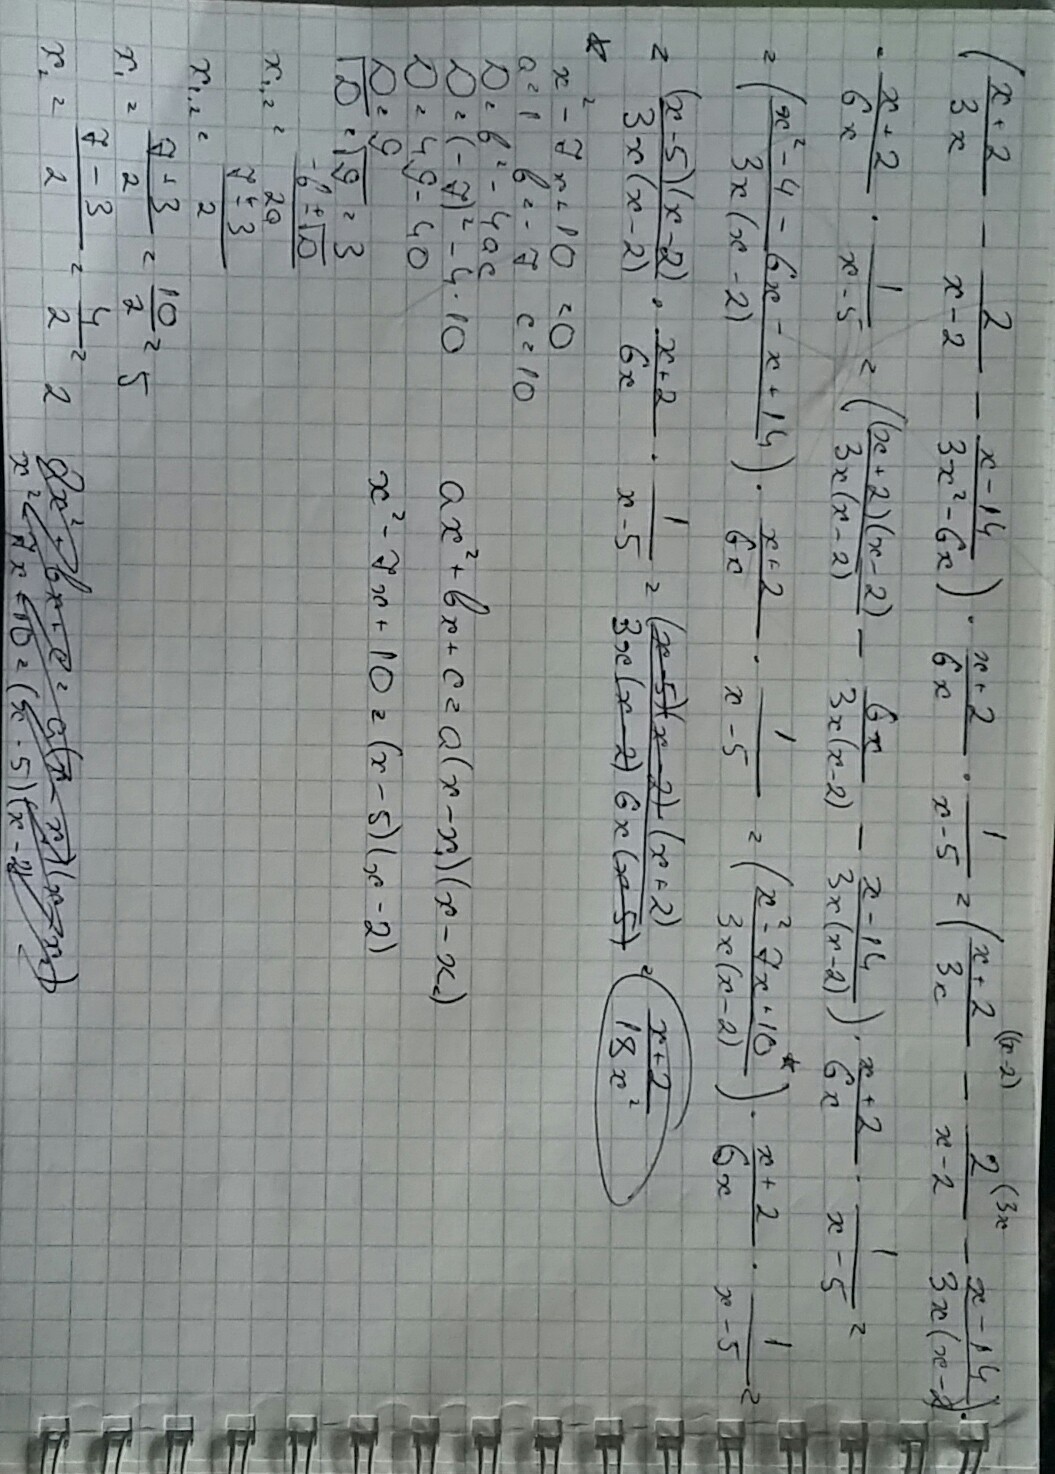 ((x+2)/(3x) − 2/(x−2) − (x−14)/(3x²−6x)) · (x+2)/(6x) · 1/(x−5) = ((x+2)/(3x) (x−2) − 2/(x−2) (3x − (x−14)/(3x(x−2)) ·
· (x+2)/(6x) · 1/(x−5) = ((x+2)(x−2)/(3x(x−2)) − 6x/(3x(x−2)) − (x−14)/(3x(x−2))) · (x+2)/(6x) · 1/(x−5) =
= ((x²−4−6x−x+14)/(3x(x−2))) · (x+2)/(6x) · 1/(x−5) = ((x²−7x+10*)/(3x(x−2))) · (x+2)/(6x) · 1/(x−5) =
= (x−5)(x−2)/(3x(x−2)) · (x+2)/(6x) · 1/(x−5) = (x−5)(x−2)(x+2)/(3x(x−2) 6x(x−5)) = (x+2)/(18x²)
* x²−7x+10=0
a=1 b=−7 c=10
D=b²−4ac
D=(−7)²−4·10
D=49−40
D=9
√D=√9=3
x₁,₂ = (−b±√D)/(2a)
x₁,₂ = (7±3)/2
x₁ = (7+3)/2 = 10/2 = 5
x₂ = (7−3)/2 = 4/2 = 2
ax²+bx+c=a(x−x₁)(x−x₂)
x²−7x+10=(x−5)(x−2)
ax²+bx+c=a(x−x₁)(x−x₂)
x²−7x+10=(x−5)(x−2)